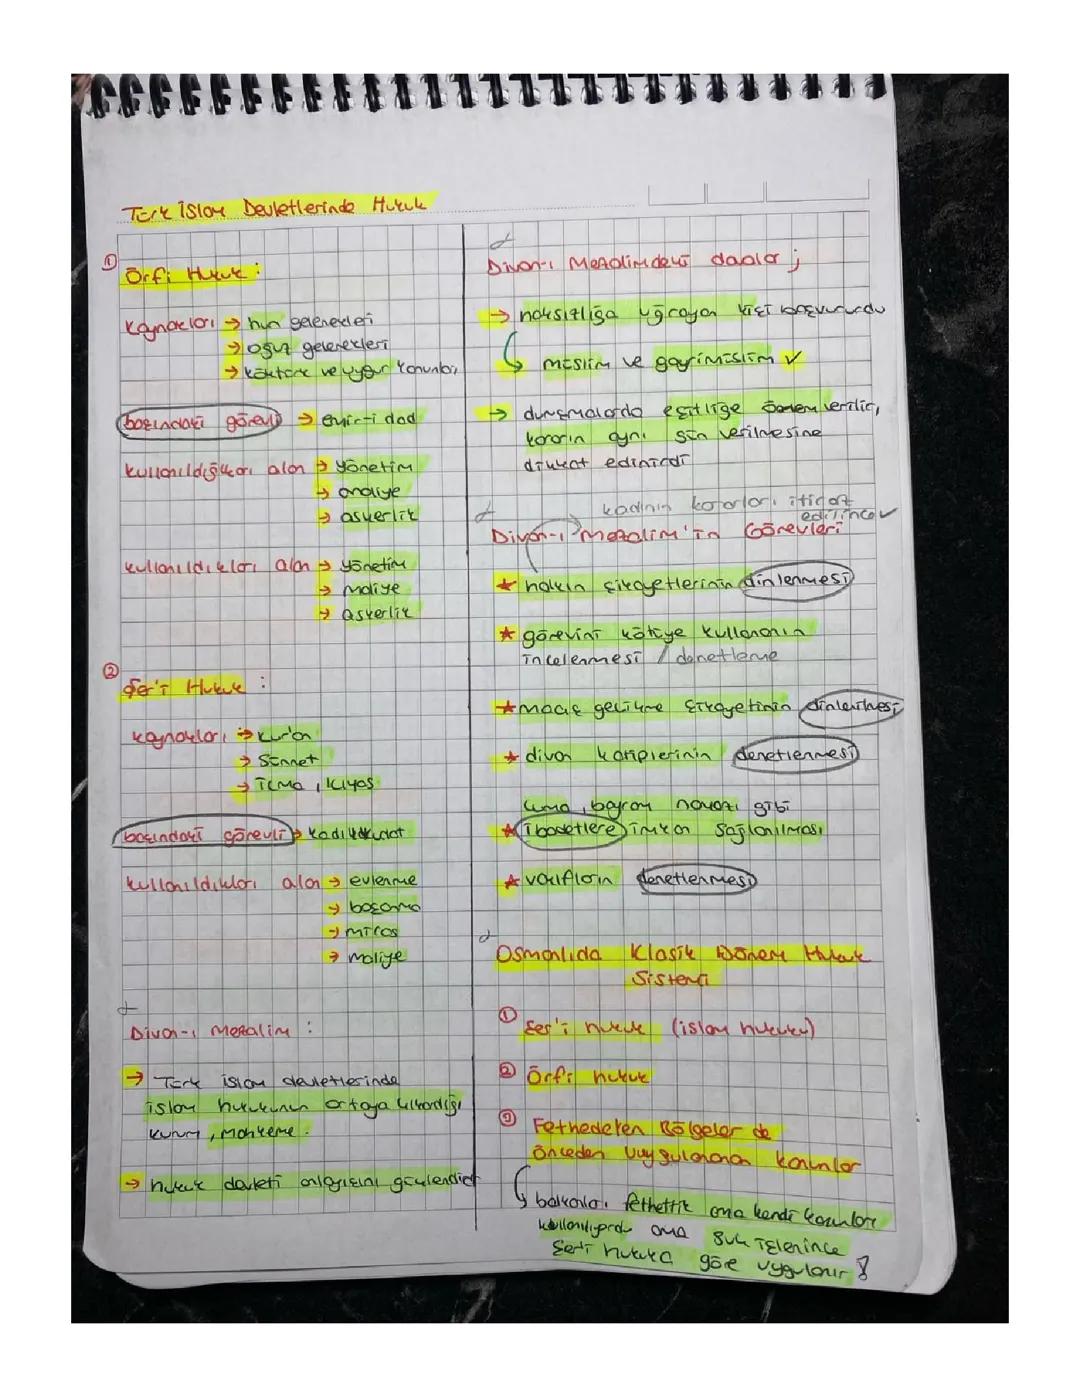 Türk İslam Devletlerinde Hukuk
① Örfi Hukuk :
Kaynakları → hun gelenekleri
→ oğuz gelenekleri
→ köktürk ve uygur kanunları
başındaki görevli → emir-i dad
kullanıldığı alan → yönetim
→ maliye
→ askerlik
kullanıldıkları alan → yönetim
→ maliye
→ askerlik
② Şer'i Hukuk :
kaynakları → kur'an
→ Sünnet
→ İcma, kıyas
başındaki görevli → kadı
kullanıldıkları alan → evlenme
→ boşanma
→ miras
→ maliye
Divan-ı Mezalim :
→ Türk islam devletlerinde
islam hukukunun ortaya çıkardığı
kurum, mahkeme.
→ hukuk devleti anlayışını güçlendirir
Divan-ı Mezalimdeki davalar ;
→ haksızlığa uğrayan kişi başvururdu
müslim ve gayrimüslim ✓
→ duruşmalarda eşitliğe önem verilir,
kararın aynı gün verilmesine
dikkat edinirdi
kadının kararları itiraz
edilince ✓
Divan-ı Mezalim'in Görevleri
★ halkın şikayetlerinin dinlenmesi
★ görevini kötüye kullananın
incelenmesi / denetleme
★ maaş gecikme şikayetinin dinlenmesi
★ divan katiplerinin denetlenmesi
cuma, bayram namazı gibi
★ ibadetlere imkan sağlanılması
★ vakıfların denetlenmesi
Osmanlıda Klasik Dönem Hukuk
Sistemi
① Şer'i hukuk (islam hukuku)
② Örfi hukuk
③ Fethedilen Bölgeler de
Önceden Uygulanan kanunlar
balkanları fethettik ama kendi kanunları
kullanılıyordu ama suç işlenince
Şer'i hukuka göre uygulanır !